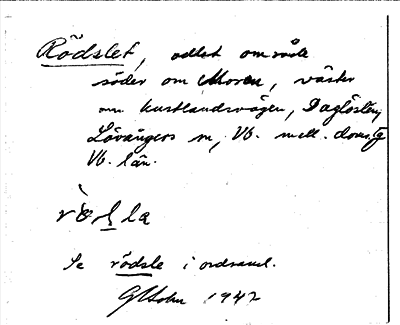 Rödslet, odlat område
söder om Moren, väster
om kustlandsvägen, Daglösten,
Lövångers sn, Vb. mell. doms.
Vb. län.
Se rödsle i ordsaml.
1942